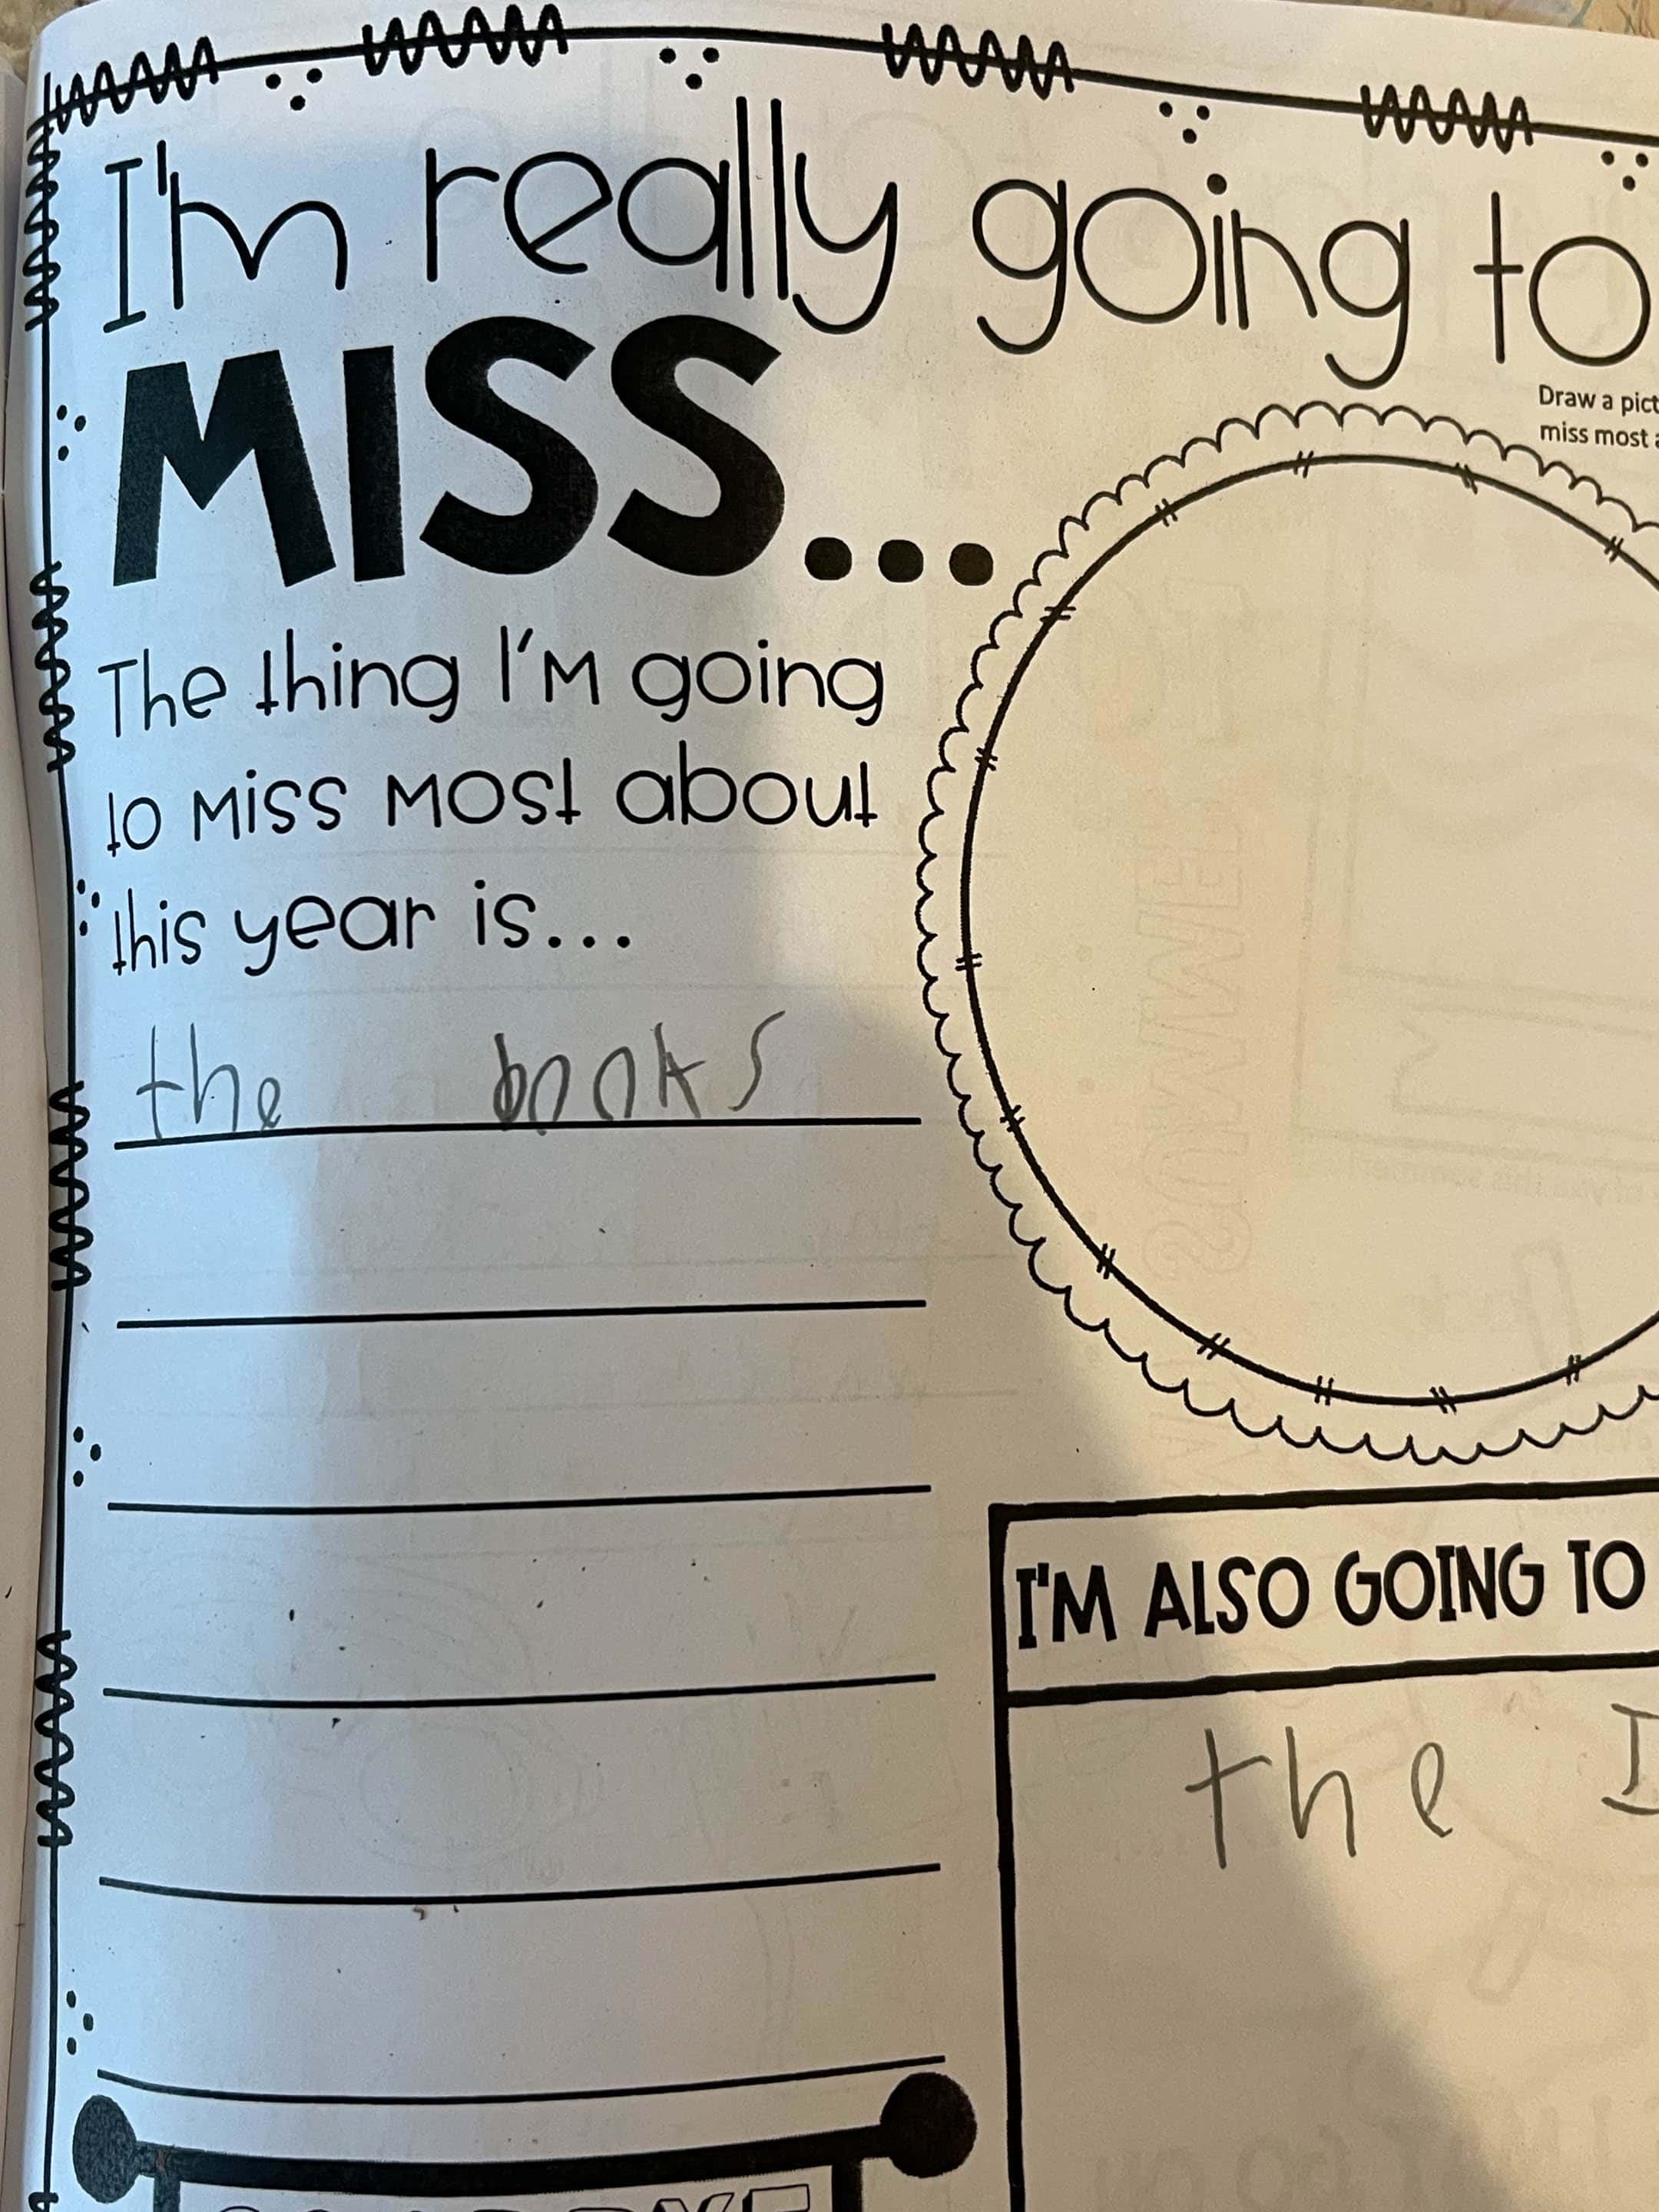 I'm really going to
MISS...
Draw a pict
miss most a
The thing I'm going
to miss most about
this year is...
the books
I'M ALSO GOING TO
the I